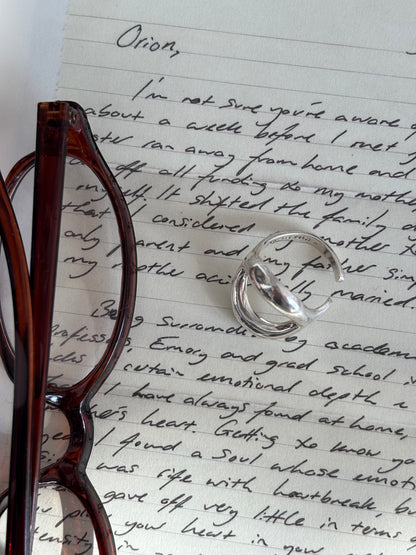 Orion,
I'm not sure you're aware o
about a week before I met y
ster ran away from home and
off all funding to my mothe
myself. It shifted the family d
that I considered mother
only parent and my father simp
my mother acci ly married
Being surrounded by academi
Professors, Emory and grad school i
certain emotional depth
I have always found at home,
he's heart. Getting to know yo
I found a soul whose emoti
was rife with heartbreak, bu
gave off very little in terms
your heart in your
tensity in